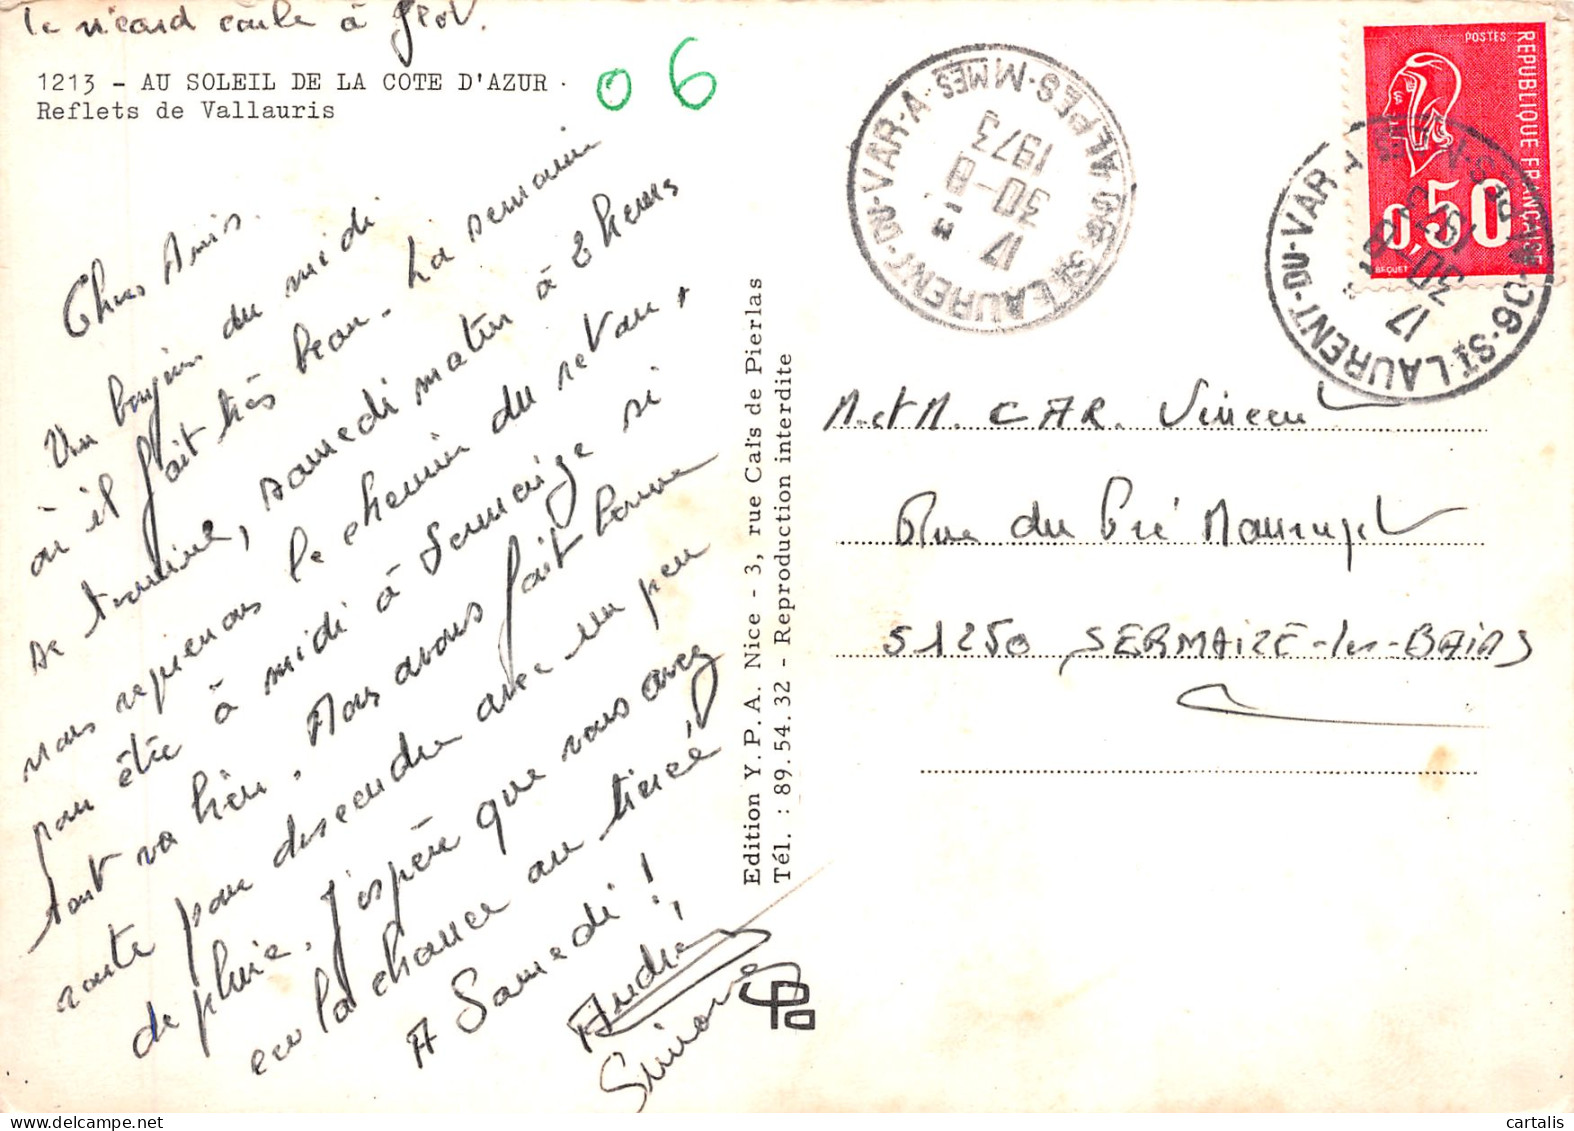 le ricard coule à
1213 - AU SOLEIL DE LA COTE D'AZUR
Reflets de Vallauris
06
Chers Amis.
Un bonjour du midi
où il fait très beau. La semaine
se termine, samedi matin à 8 heures
nous reprenons le chemin du retour,
pour être à midi à Sermaize si
tout va bien. Nous avons fait bonne
route pour descendre avec un peu
de pluie. J'espère que vous avez
eu la chance au tiercé
A Samedi !
André
Simone
Edition Y.P.A. Nice - 3, rue Caïs de Pierlas
Tél. : 89.54.32 - Reproduction interdite
YPA
06 ST LAURENT-DU-VAR-A ALPES-MMES
17 H
30-8
1973
POSTES
REPUBLIQUE FRANÇAISE
0,50
BEQUET
06 ST LAURENT-DU-VAR
17 H
30
M. et M. CAR. Vincent
Rue du Pré
51250 SERMAIZE-les-BAINS
cartalis
© cartalis.com